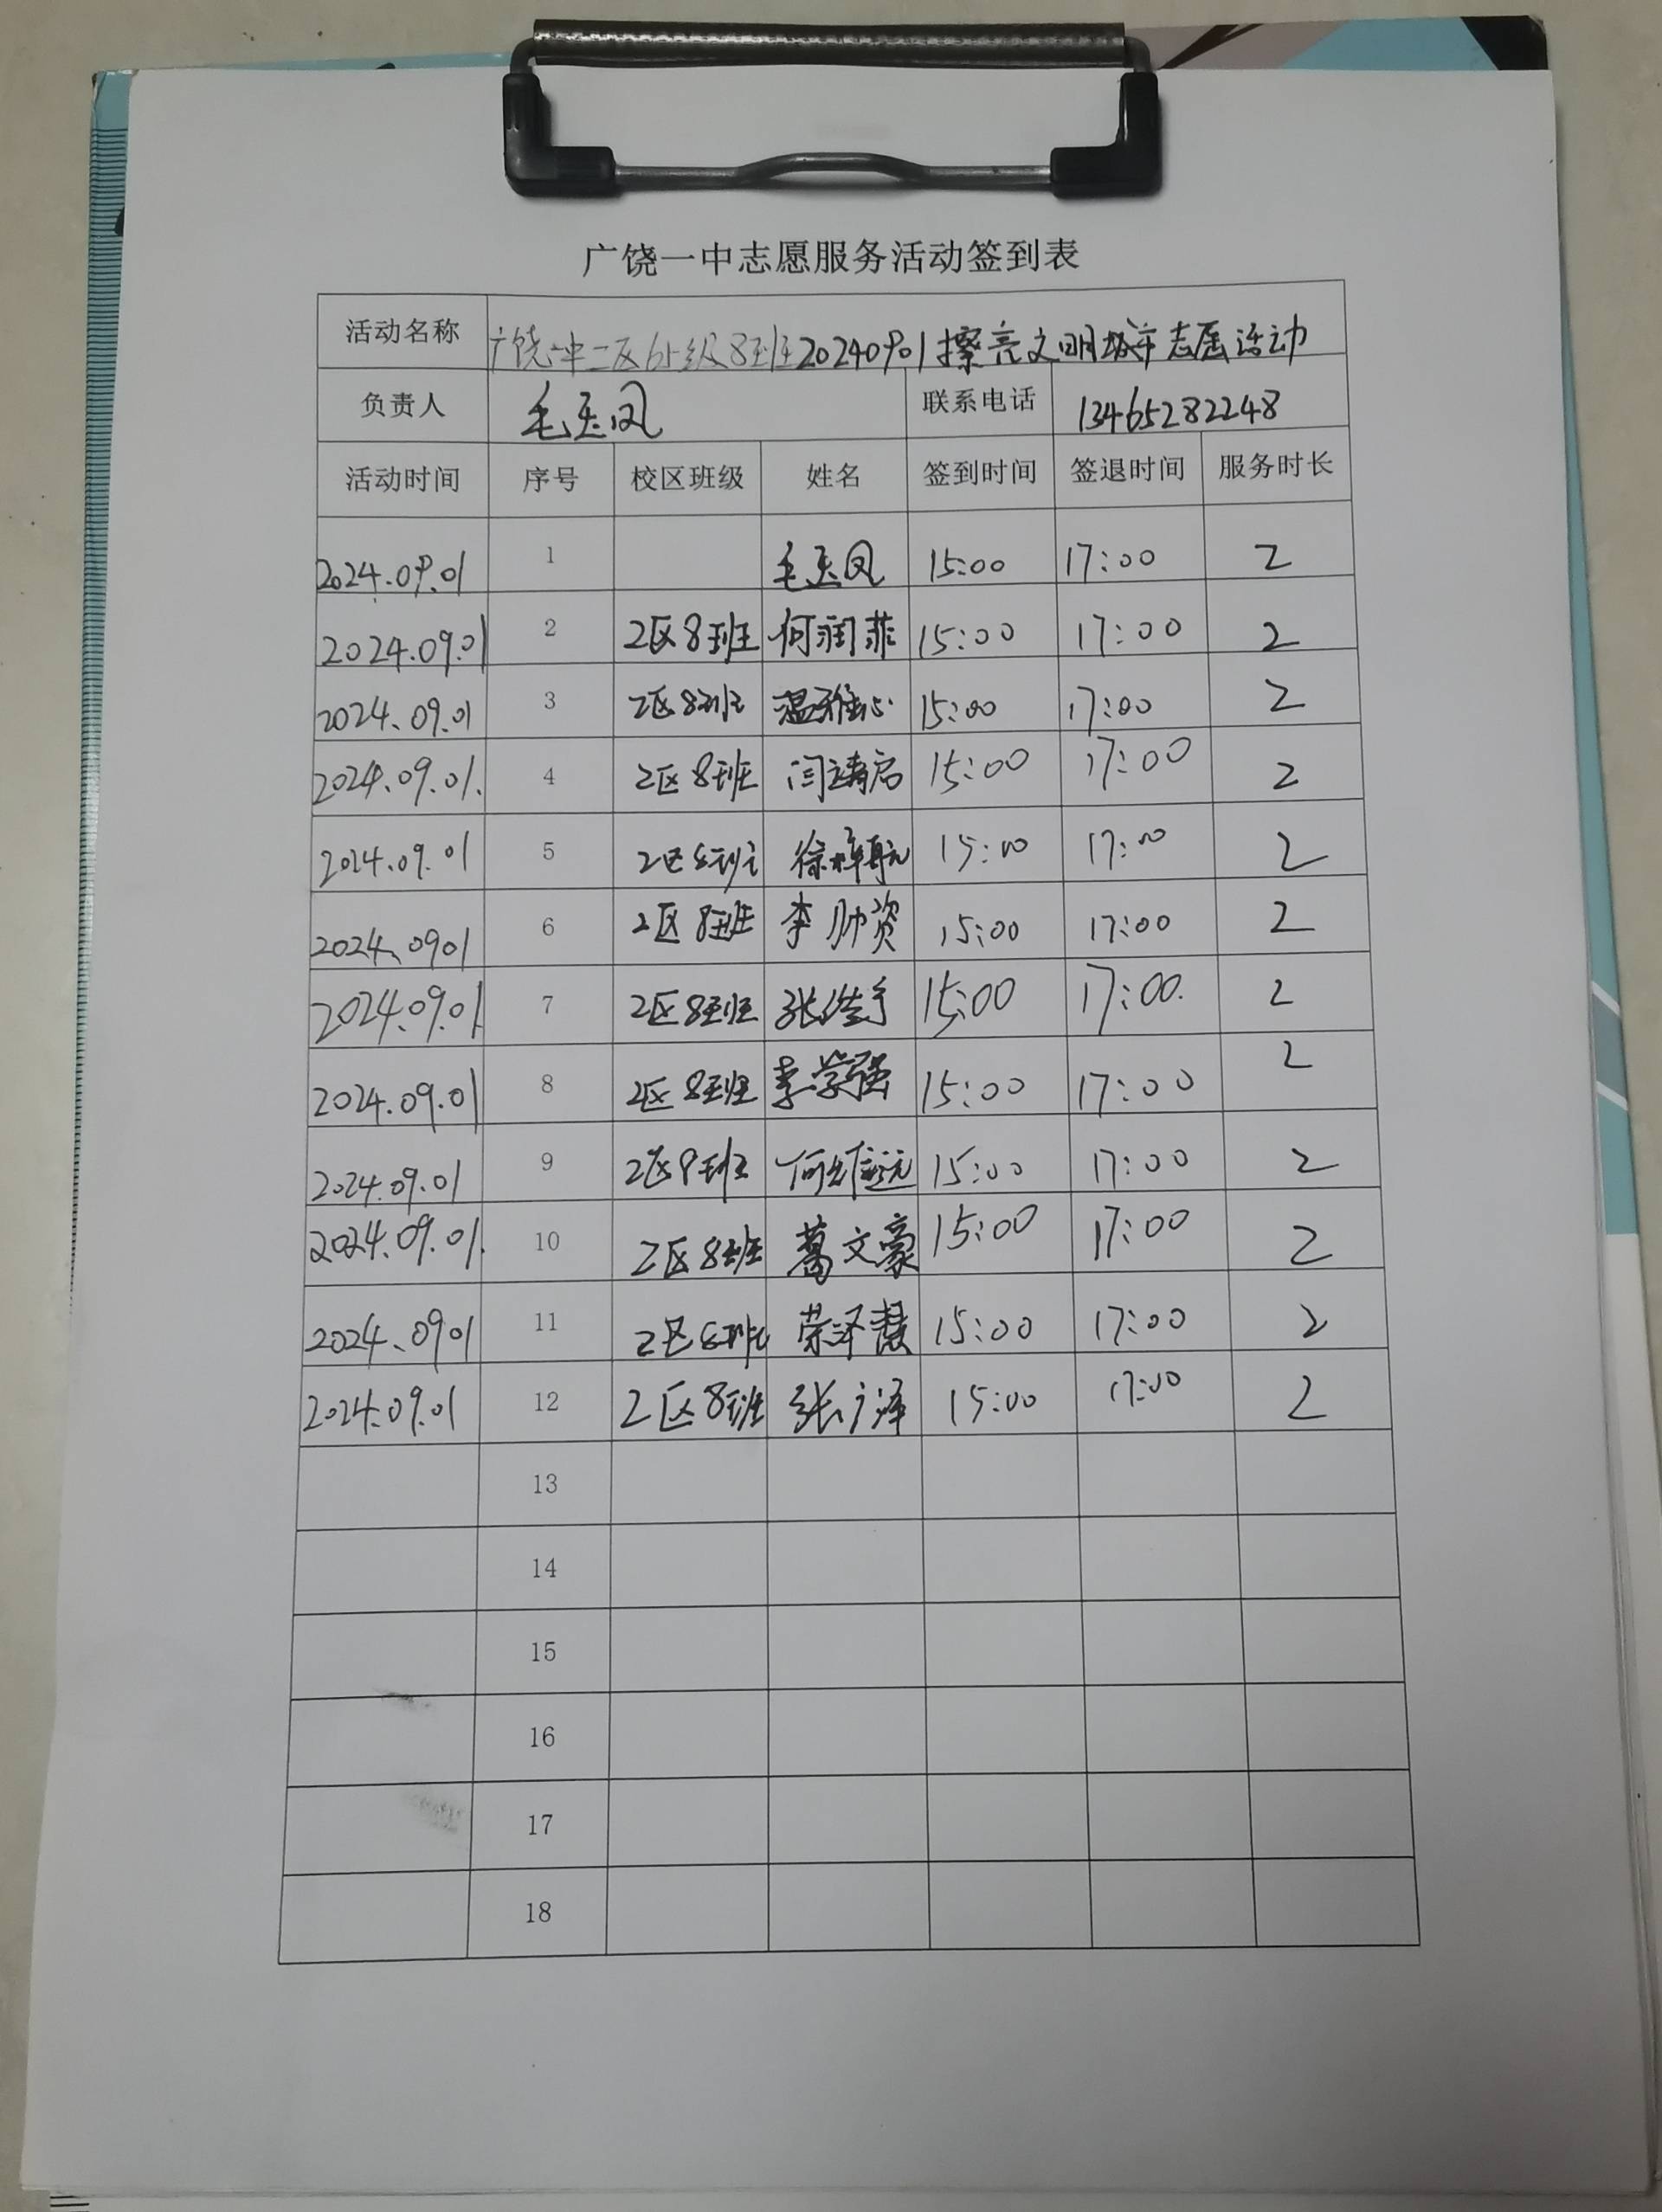 广饶一中志愿服务活动签到表
活动名称 广饶一中二区65级8班20240901擦亮文明城市志愿活动
负责人 毛玉凤 联系电话 13465282248
活动时间 序号 校区班级 姓名 签到时间 签退时间 服务时长
2024.09.01 1 毛玉凤 15:00 17:00 2
2024.09.01 2 2区8班 何润菲 15:00 17:00 2
2024.09.01 3 2区8班 温雅心 15:00 17:00 2
2024.09.01. 4 2区8班 闫 15:00 17:00 2
2024.09.01 5 2区8班 徐梓航 15:00 17:00 2
2024.0901 6 2区8班 李帅资 15:00 17:00 2
2024.09.01 7 2区8班 张 15:00 17:00. 2
2024.09.01 8 2区8班 李学强 15:00 17:00 2
2024.09.01 9 2区8班 何 15:00 17:00 2
2024.09.01. 10 2区8班 葛文豪 15:00 17:00 2
2024.0901 11 2区8班 荣泽慧 15:00 17:00 2
2024.09.01 12 2区8班 张广泽 15:00 17:00 2
13
14
15
16
17
18